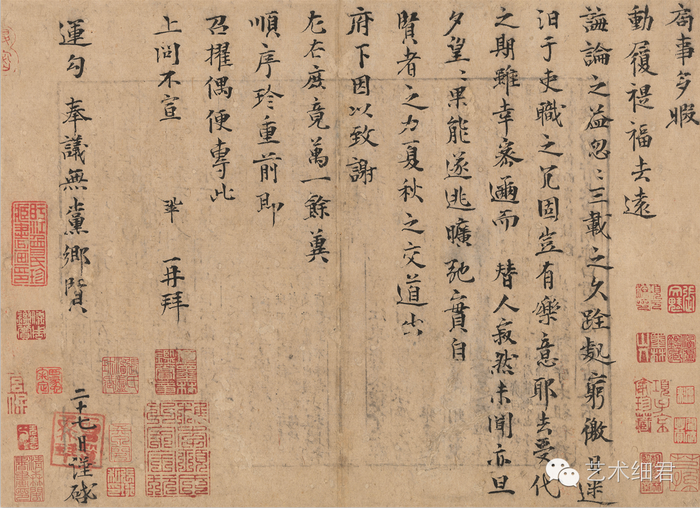 局事多暇
動履禔福去遠
誨論之益忽〻三載之久跧處窮徼日迷
汨于吏職之冗固豈有樂意耶去受代
之期雖幸密邇而 替人寂然未聞亦旦
夕望〻果能遂逃曠弛實自
賢者之力夏秋之交道出
府下因以致謝
左右庶竟萬一餘冀
順序珍重前即
召擢偶便專此
上問不宣 鞏 再拜
運勾 奉議無黨鄉賢
二十七日謹啓
艺术细君